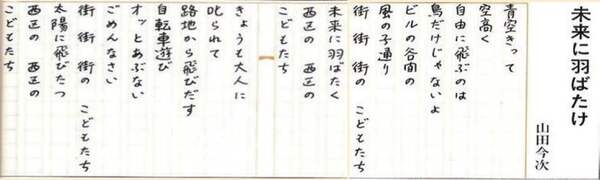 未来に羽ばたけ
山田今次
青空きって
空高く
自由に飛ぶのは
鳥だけじゃないよ
ビルの谷間の
風の子通り
街 街 街の こどもたち
未来に羽ばたく
西区の 西区の
こどもたち
きょうも大人に
叱られて
路地から飛びだす
自転車遊び
オッとあぶない
ごめんなさい
街 街 街の こどもたち
太陽に飛びたつ
西区の 西区の
こどもたち